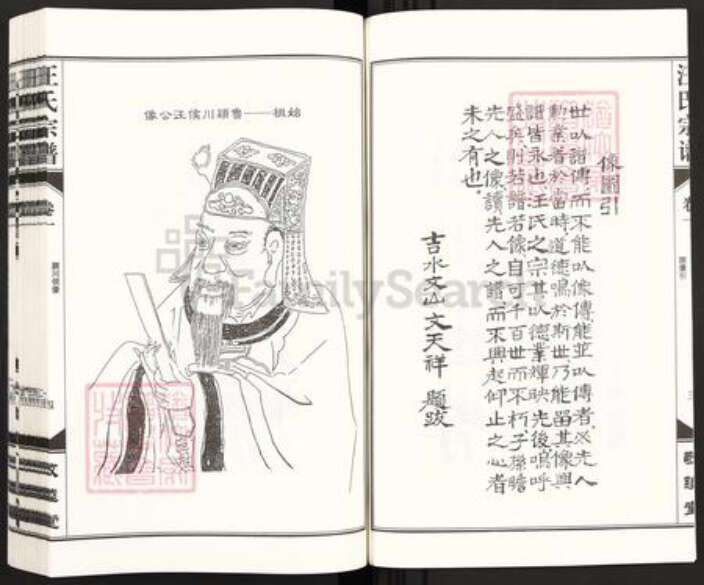 像圖引
世以譜傳而不能以像傳能並以傳者必先人
勳業著於當時道德鳴於斯世乃能留其像與
譜皆永也汪氏之宗其以德業輝映先後嗚呼
盛矣則若譜若像自可千百世而不朽子孫瞻
先人之像讀先人之譜而不興起仰止之心者
未之有也
吉水文山文天祥 題跋
始祖——魯潁川侯汪公像
汪氏宗譜
卷一
汪氏宗譜
卷一
FamilySearch